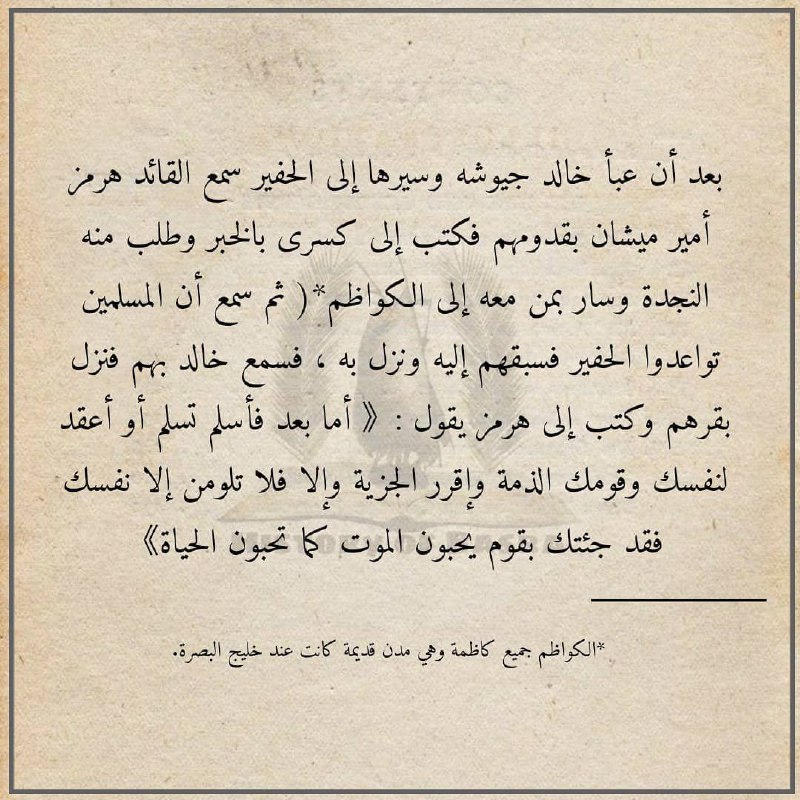 بعد أن عبأ خالد جيوشه وسيرها إلى الحفير سمع القائد هرمز
أمير ميشان بقدومهم فكتب إلى كسرى بالخبر وطلب منه
النجدة وسار بمن معه إلى الكواظم*( ثم سمع أن المسلمين
تواعدوا الحفير فسبقهم إليه ونزل به ، فسمع خالد بهم فنزل
بقرهم وكتب إلى هرمز يقول : ⟪ أما بعد فأسلم تسلم أو أعقد
لنفسك وقومك الذمة وإقرر الجزية وإلا فلا تلومن إلا نفسك
فقد جئتك بقوم يحبون الموت كما تحبون الحياة⟫
*الكواظم جميع كاظمة وهي مدن قديمة كانت عند خليج البصرة.